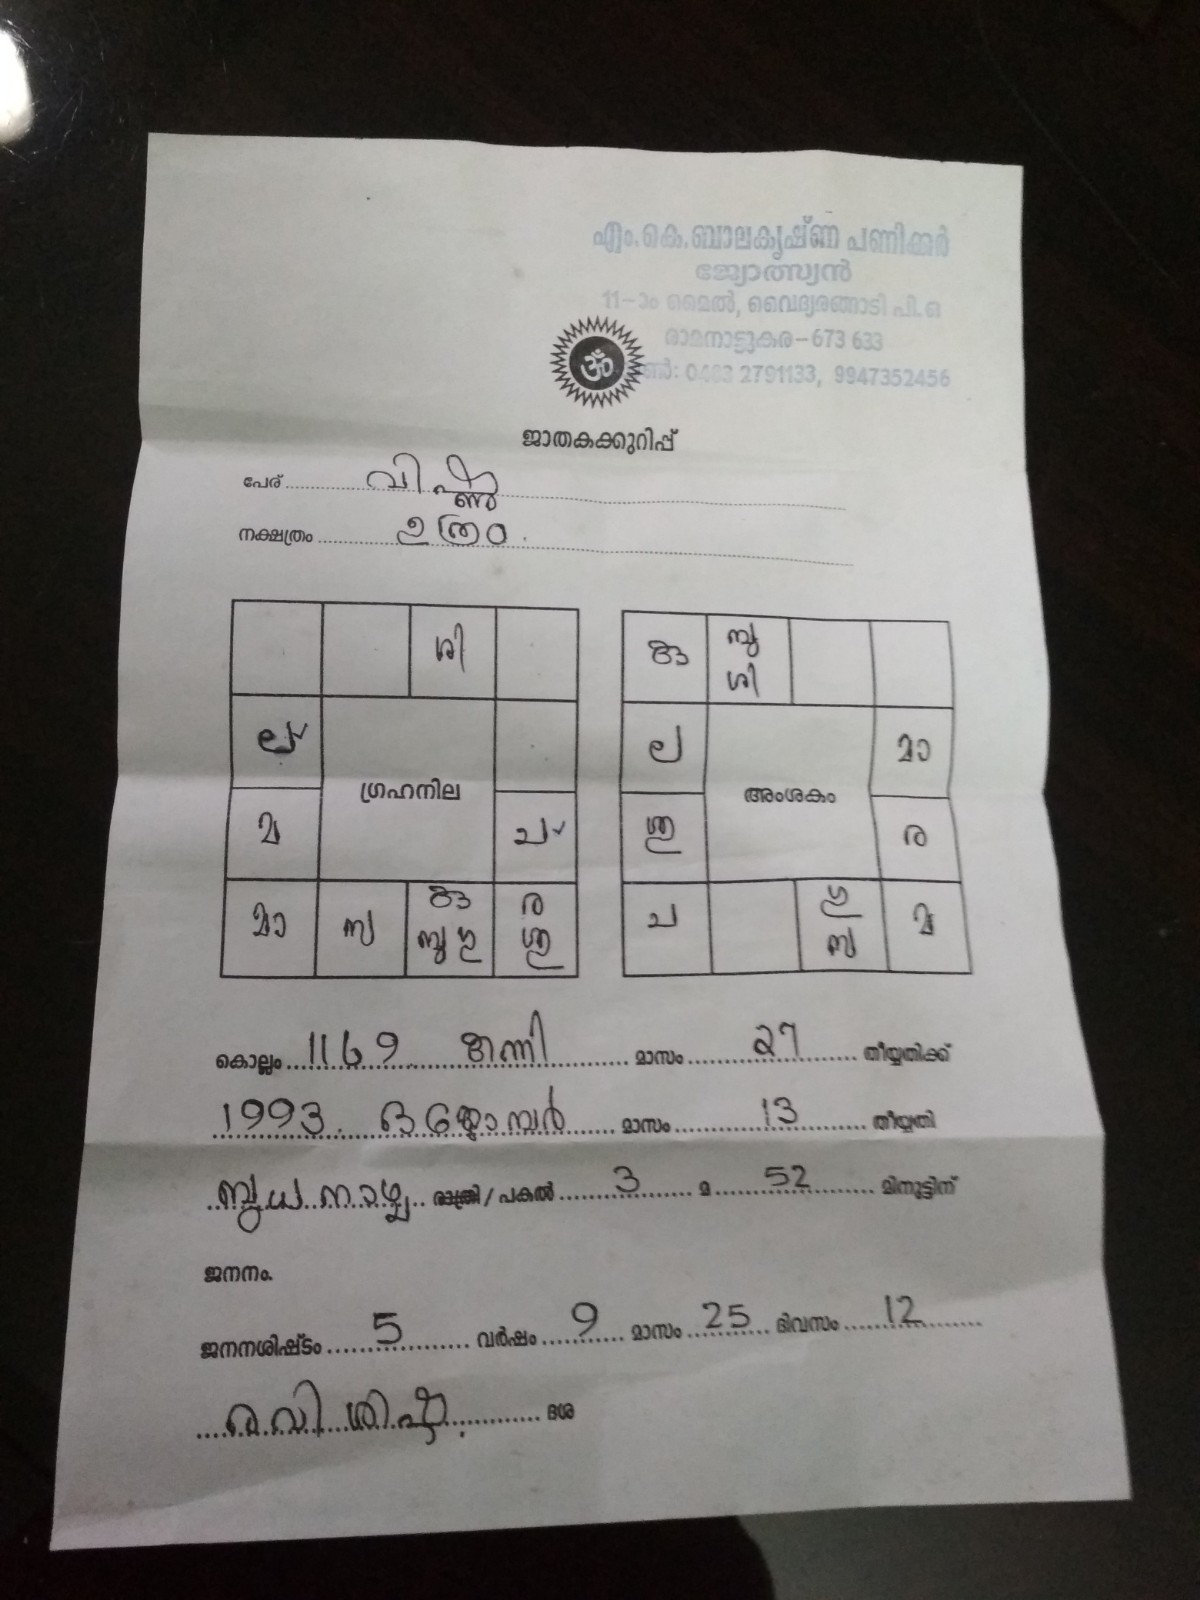 എം.കെ.ബാലകൃഷ്ണ പണിക്കർ
ജ്യോത്സ്യൻ
11-ാം മൈൽ, വൈദ്യരങ്ങാടി പി.ഒ
രാമനാട്ടുകര-673 633
2791133, 9947352456
ॐ
ജാതകക്കുറിപ്പ്
പേര് വിഷ്ണു
നക്ഷത്രം ഉത്രം.
ശി
ല
ഗ്രഹനില
മ
ച
മാ സ കു ബു ഗു ര ശു
കു ബു ശി
ല മാ
അംശകം
ശു ര
ച ഗു സ മ
കൊല്ലം 1169 കന്നി മാസം 27 തീയ്യതിക്ക്
1993. ഒക്ടോമ്പർ മാസം 13 തീയ്യതി
ബുധനാഴ്ച രാത്രി / പകൽ 3 മ 52 മിനുട്ടിന്
ജനനം.
ജനനശിഷ്ടം 5 വർഷം 9 മാസം 25 ദിവസം 12
രവി ശിഷ്ട. ദശ